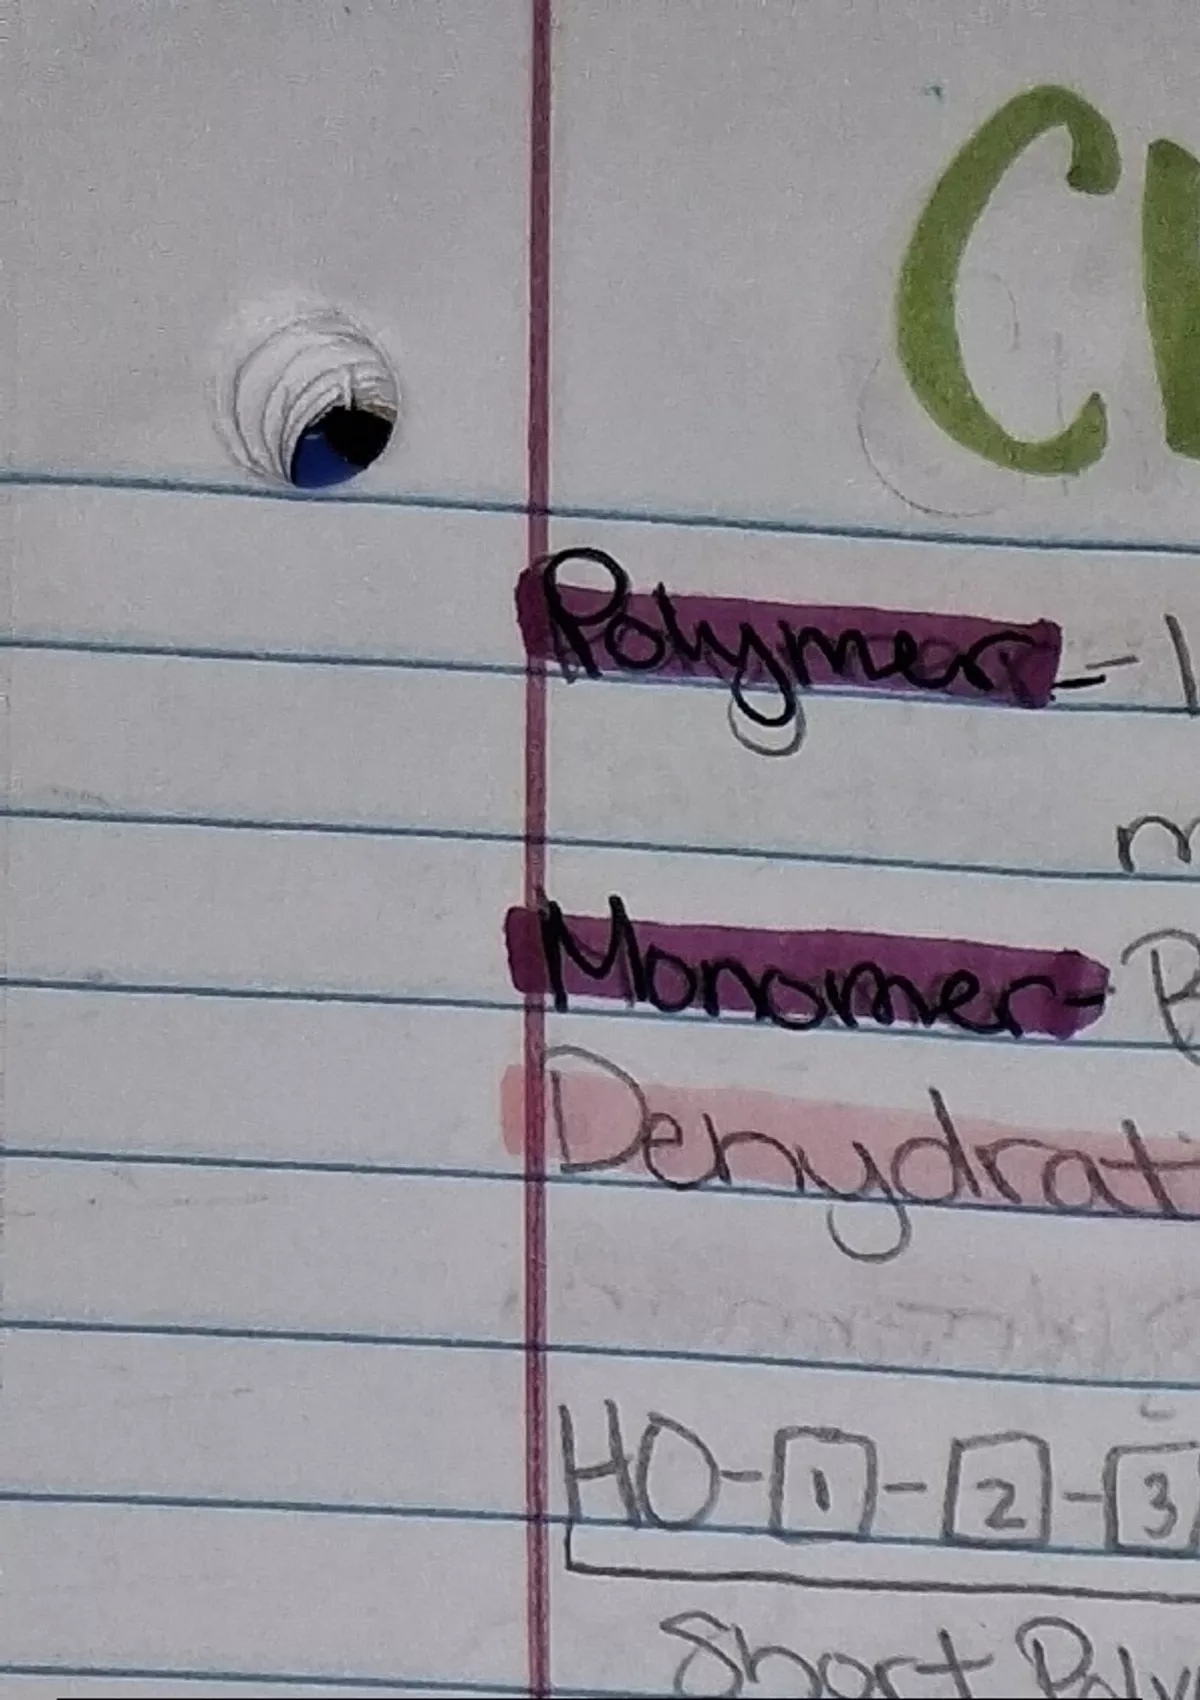 C
Polymer =
Monomer -
Dehydrat
HO-1-2-3
Short Poly